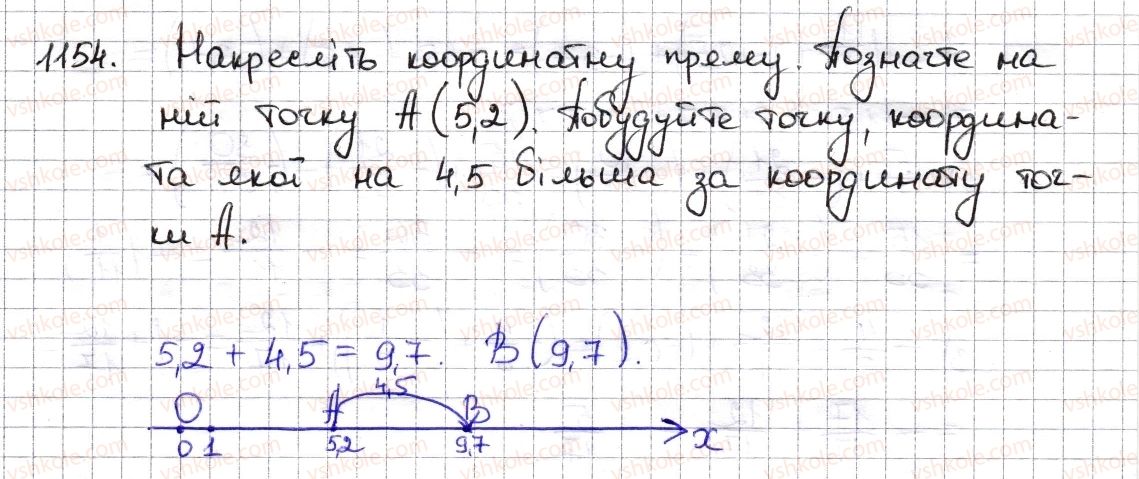 1154. Накресліть координатну пряму. Позначте на
ній точку А(5,2). Побудуйте точку, координа-
та якої на 4,5 більша за координату точ-
ки А.
5,2 + 4,5 = 9,7. В(9,7).
4,5
О А В
0 1 5,2 9,7 x